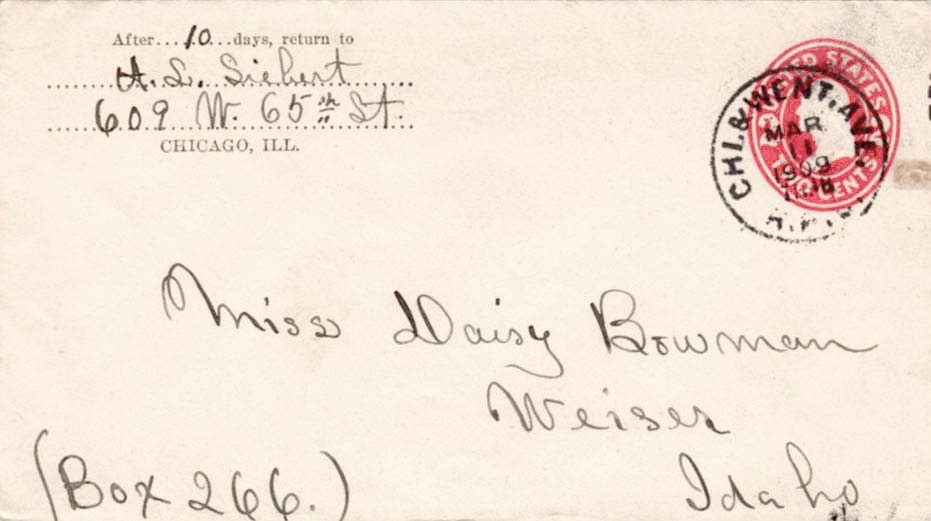 After....10...days, return to
H. L. Siebert
609 W. 65th St.
CHICAGO, ILL.
UNITED STATES
TWO CENTS
CHI. & WENT. AVE.
MAR
11
1909
Miss Daisy Bowman
Weiser
Idaho
(Box 266.)